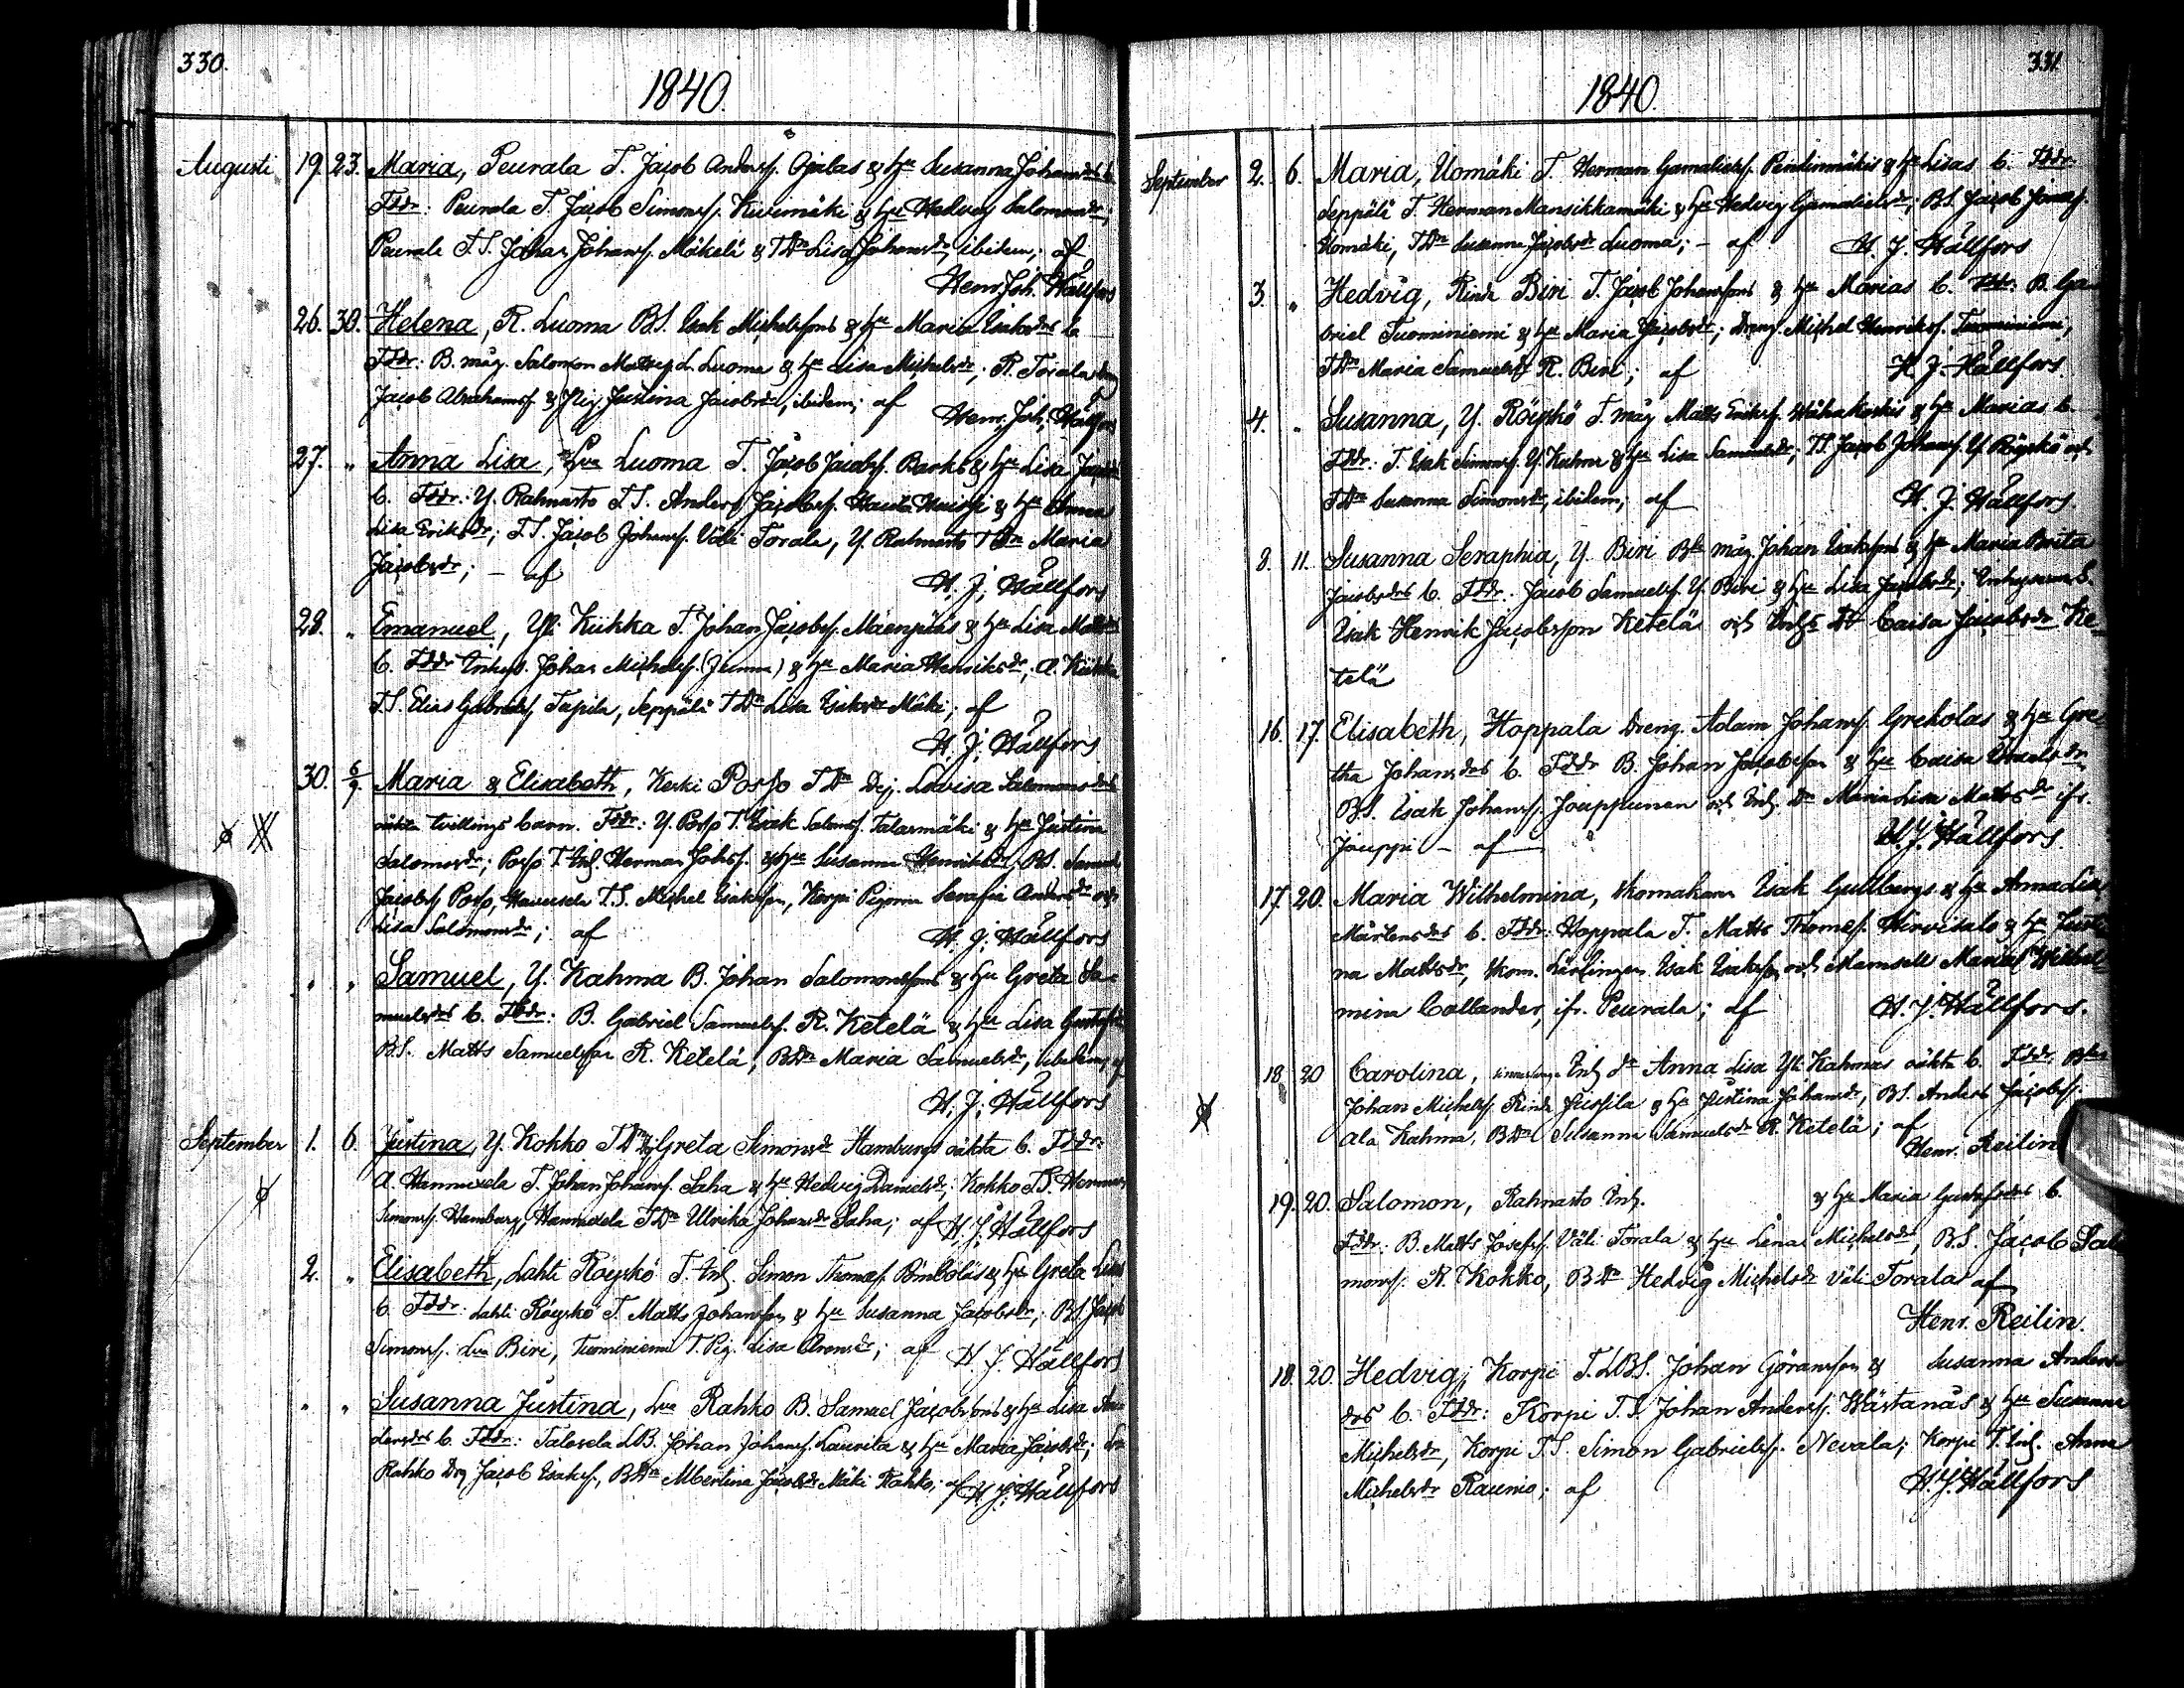 330.
1840.
Augusti 19. 23. Maria, Peurala T. Jacob Anderss. Ojalas & hu Susanna Johansdrs b.
Fddr: Peurala T. Jacob Simonss. Kivimäki & hu Hedvig Salomonsdr;
Peurala T.S. Johan Johanss. Mäkelä & TDn Lisa Johansdr, ibidem; af
Henr. Joh. Hållfors
26. 30. Helena, R. Luoma BS. Isak Michelssons & hu Maria Isaksdrs b.
Fddr: B. måg Salomon Luoma & hu Lisa Michelsdr; R. Torala drg
Jacob Abrahamss. & Pig. Justina Jacobsdr, ibidem; af Henr. Joh. Hållfors
27. " Anna Lisa, Lua Luoma T. Jacob Jacobss. Barks & hu Lisa
b. Fddr: Y. Rahnasto T.S. Anders Jacobss. & hu Anna
Lisa Eriksdr; T.S. Jacob Johanss. Väli Torala, Y. Rahnasto TDn Maria
Jacobsdr; – af H. J. Hållfors
28. " Emanuel, Yli Kiikka T. Johan Jacobss. Mäenpääs & hu Lisa Mattsdrs
b. Fddr Enhys. Johan Michelss. & hu Maria Henriksdr; A. Kiikka
T.S. Elias Gabrielss. Tapila, Seppälä TDn Lisa Isaksdr Mäki; af
H. J. Hållfors
30. 6/9. Maria & Elisabeth, Kerki Posso TDn Dej. Lovisa Salomonsdrs
oäkta tvillings barn. Fddr: Y. Posso T. Isak Saloms. Talasmäki & hu Justina
Salomonsdr; Posso T. Inh. Herman Johss. & hu Susanna Henriksdr; BS. Samuel
Jacobss. Posso, T.S. Michel Isaksson, Korpi Pigorna Serafia Andersdr och
Lisa Salomonsdr; af H. J. Hållfors
" " Samuel, Y. Kahma B. Johan Salomonssons & hu Greta Sa-
muelsdrs b. Fddr: B. Gabriel Samuelss. R. Ketelä & hu Lisa Gustafsdr
B.S. Matts Samuelsson R. Ketelä, BDn Maria Samuelsdr, ibidem; af
H. J. Hållfors
September 1. 6. Justina, Y. Kokko TDn Greta Simonsdr Hamburgs oäkta b. Fddr:
A. Hannuxela T. Johan Johanss. Saha & hu Hedvig Danielsdr; Kokko T.S. Herman
Simonss. Hamburg, Hannuxela TDn Ulrika Johansdr Saha; af H. J. Hållfors
2. " Elisabeth, Lahti Röyskö T. Inh. Simon Thomass. & hu Greta
b. Fddr: Lahti Röyskö T. Matts Johansson & hu Susanna Jacobsdr; BS. Jacob
Simonss. Lua Biri, Tuominiemi T. Pig. Lisa Aronsdr; af H. J. Hållfors
" " Susanna Justina, Lua Rahko B. Samuel Jacobssons & hu Lisa An-
dersdrs b. Fddr: Talvela LB. Johan Johanss. Laurila & hu Maria Jacobsdr; Lua
Rahko Drg Jacob Isakss., BDn Albertina Jacobsdr Mäki Rahko; af H. J. Hållfors
331.
1840.
September 2. 6. Maria, Uomäki T. Herman Gamalielss. Pentinmäkis & hu Lisas b. Fddr:
Seppälä T. Herman Mansikkamäki & hu Hedvig Gamalielsdr; BS. Jacob Jonass.
Uomäki, TDn Susanna Jacobsdr Luoma; – af H. J. Hållfors
3. " Hedvig, Rinda Biri T. Jacob Johanssons & hu Marias b. Fddr: B. Ga-
briel Tuominiemi & hu Maria Jacobsdr; Dreng Michel Henrikss. Tuominiemi,
TDn Maria Samuelsdr R. Biri; af H. J. Hållfors.
4. " Susanna, Y. Röyskö T. måg Matts Erikss. Wähäkoskis & hu Marias b.
Fddr: T. Isak Simonss. Y. & hu Lisa Samuelsdr; TS. Jacob Johanss. Y. Röyskö och
TDn Susanna Simonsdr, ibidem; af H. J. Hållfors.
8. 11. Susanna Seraphia, Y. Biri Bs måg Johan Isakssons & hu Maria Brita
Jacobsdrs b. Fddr: Jacob Samuelss. Y. Biri & hu Lisa Jacobsdr; S.
Isak Henrik Jacobsson Ketelä och Inhs Dr Caisa Jacobsdr Ke-
telä
16. 17. Elisabeth, Hoppala Dreng. Adam Johanss. Grekolas & hu Gre-
tha Johansdrs b. Fddr B. Johan Jacobsson & hu Caisa
BS. Isak Johanss. Jouppunen och Inh. Dr Maria Lisa Mattsdr ifr.
Jouppi – af H. J. Hållfors.
17. 20. Maria Wilhelmina, Skomakaren Isak Gullbergs & hu Anna Lisa
Mårtensdrs b. Fddr: Hoppala T. Matts Thomass. Hirvisalo & hu Justi-
na Mattsdr, Skom. Lärlingen Isak Isaksson och Mamsell Maria Wilhel-
mina Callander, ifr. Peurala; af H. J. Hållfors.
18. 20 Carolina, Inh dr Anna Lisa Yli Kahmas oäkta b. Fddr: Bs
Johan Michelss. Rinda Jussila & hu Justina Johansdr, BS. Anders Jacobss.
Ala Kahma, BDn Susanna Samuelsdr R. Ketelä; af
Henr. Reilin
19. 20. Salomon, Rahnasto Inh. & hu Maria Gustafsdrs b.
Fddr: B. Matts Josefss. Väli Torala & hu Lena Michelsdr, B.S. Jacob Salo-
monss. R. Kokko, BDn Hedvig Michelsdr Väli Torala af
Henr. Reilin.
18. 20. Hedvig, Korpi T.LBS. Johan Göransson & Susanna Anders-
drs b. Fddr: Korpi T.S. Johan Anderss. Wästanås & hu Susanna
Michelsdr, Korpi TS. Simon Gabrielss. Nevala; Korpi T. Inh. Anna
Michelsdr Raunio; af H. J. Hållfors